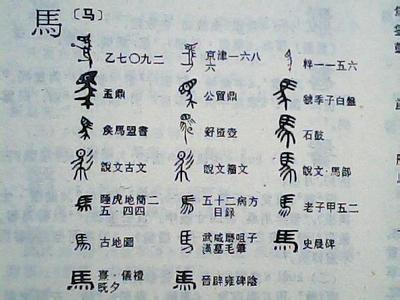 馬 〔马〕
乙七〇九二 京津一六八六 粹一一五六
盂鼎 公貿鼎 虢季子白盤
侯馬盟書 𧊒壺 石鼓
說文古文 說文籀文 說文·馬部
睡虎地簡二五·四四 五十二病方目錄 老子甲五二
古地圖 武威磨咀子漢墓毛筆 史晨碑
熹·儀禮既夕 晉辟雍碑陰